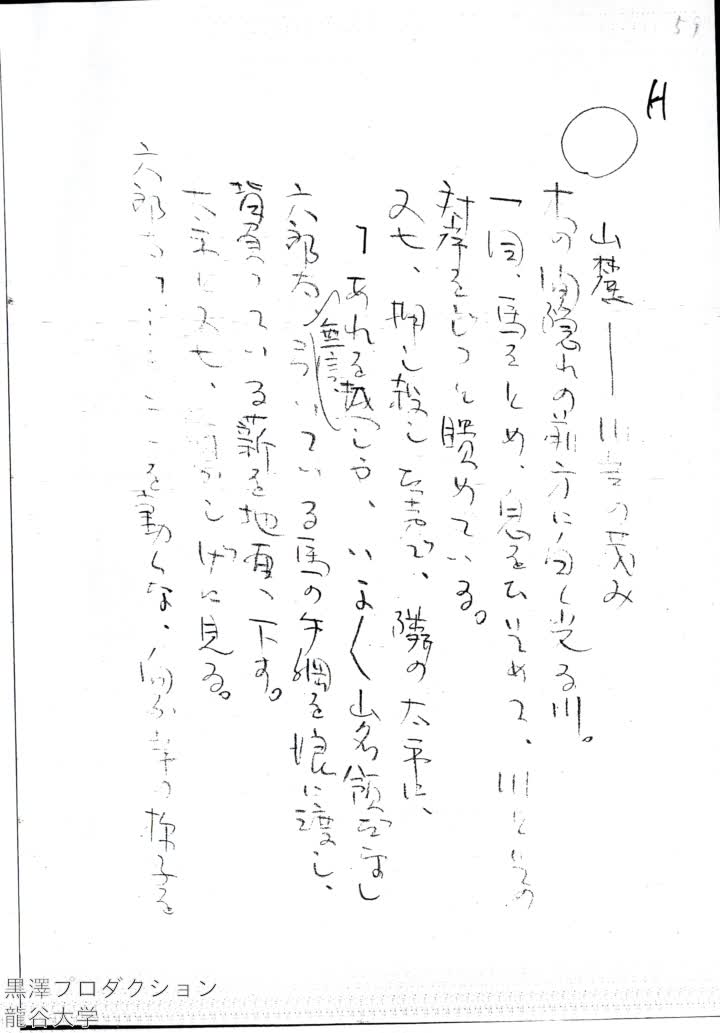 59
H
山麓――川岸の茂み
木の間隠れの前方に白く光る川。
一同、馬をとめ、息をひそめて、川とその
対岸をじっと瞶めている。
又七、押し殺した声で、隣の太平に、
「あれを越しゃ、いよ〱山名領だなし
六郎太、無言、ひいている馬の手綱を娘に渡し、
背負っている薪を地面へ下す。
太平と又七、しげに見る。
六郎太「……こゝを動くな、向ふ岸の様子を
黒澤プロダクション
龍谷大学